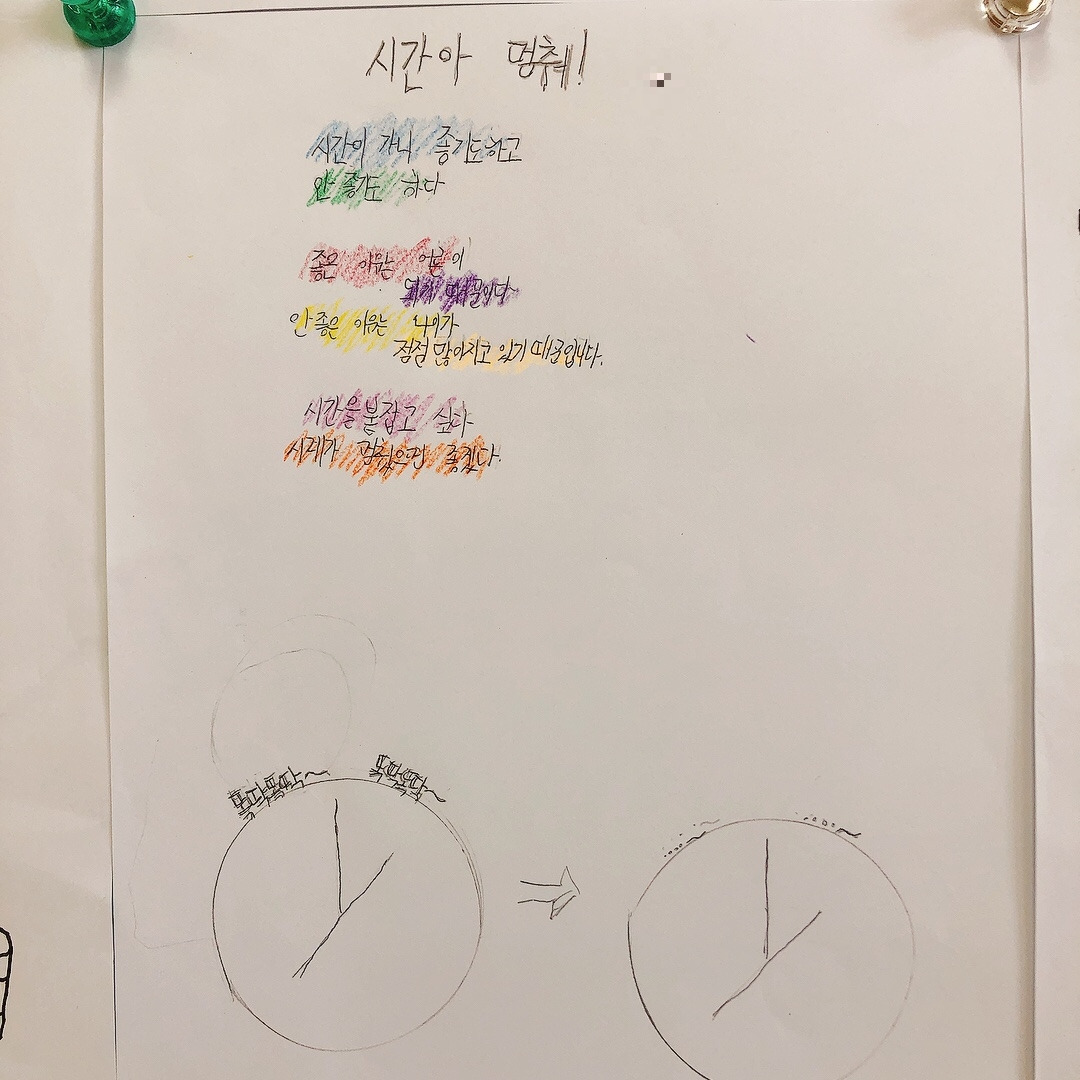 시간아 멈춰!
시간이 가니 좋기도하고
안 좋기도 하다
좋은 이유는 어른이
되기 때문이다
안 좋은 이유는 나이가
점점 많아지고 있기 때문입니다.
시간을 붙잡고 싶다
시계가 멈췄으면 좋겠다.
똑딱똑딱~
똑딱똑딱~
...~
...~